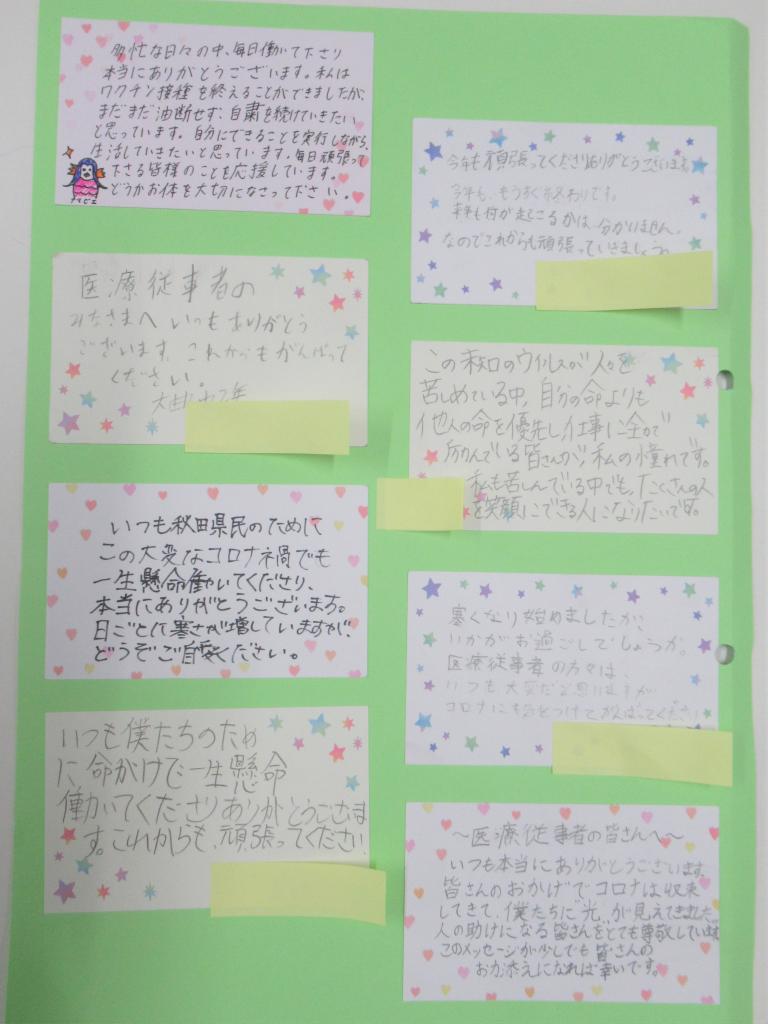 多忙な日々の中、毎日働いて下さり
本当にありがとうございます。私は
ワクチン接種を終えることができましたが、
まだまだ油断せず、自粛を続けていきたい
と思っています。自分にできることを実行しながら、
生活していきたいと思っています。毎日頑張って
下さる皆様のことを応援しています。
どうかお体を大切になさって下さい。
アマビエ
医療従事者の
みなさまへ いつもありがとう
ございます。これからもがんばって
ください。
いつも秋田県民のために
この大変なコロナ禍でも
一生懸命働いてくださり、
本当にありがとうございます。
日ごとに寒さが増していますが、
どうぞご自愛ください。
いつも僕たちのため
に命がけで一生懸命
働いてくださりありがとうござま
す。これからも、頑張ってください
今年も頑張ってくださりありがとうございます。
今年も、もうすぐ終わりです。
来年も何が起こるかは分かりません。
なのでこれからも頑張っていきましょう。
この未知のウイルスが人々を
苦しめている中、自分の命よりも
他人の命を優先し仕事に全力で
励んでいる皆さんが、私の憧れです。
私も苦しんでいる中でも、たくさんの人
を笑顔にできる人になりたいです。
寒くなり始めましたが、
いかがお過ごしでしょうか。
医療従事者の方々は、
いつも大変だと思いますが
コロナにも気をつけてがんばってください
〜医療従事者の皆さんへ〜
いつも本当にありがとうございます。
皆さんのおかげでコロナは収束
してきて、僕たちに"光"が見えてきました。
人の助けになる皆さんをとても尊敬しています。
このメッセージが少しでも皆さんの
お力添えになれば幸いです。